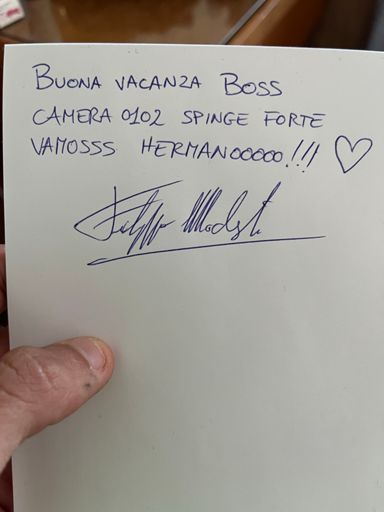 BUONA VACANZA BOSS
CAMERA 0102 SPINGE FORTE
VAMOSSS HERMANOOOOO!!! ♡
Filippo